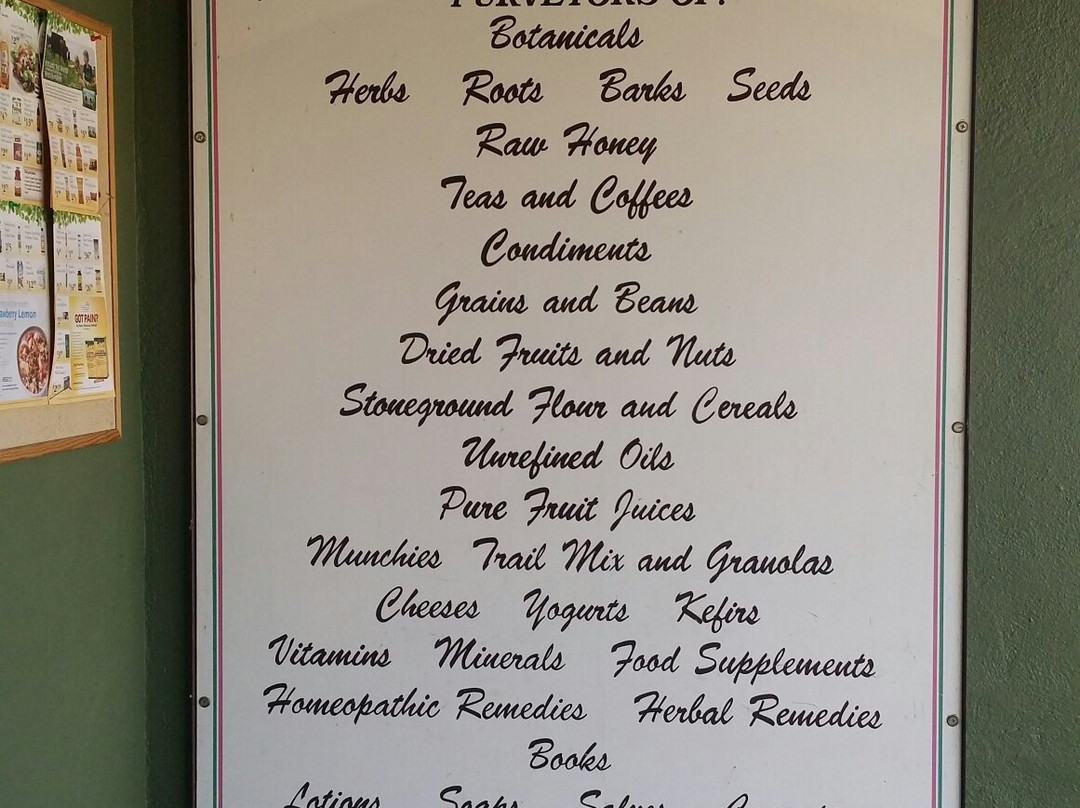 PURVEYORS OF:
Botanicals
Herbs Roots Barks Seeds
Raw Honey
Teas and Coffees
Condiments
Grains and Beans
Dried Fruits and Nuts
Stoneground Flour and Cereals
Unrefined Oils
Pure Fruit Juices
Munchies Trail Mix and Granolas
Cheeses Yogurts Kefirs
Vitamins Minerals Food Supplements
Homeopathic Remedies Herbal Remedies
Books
Lotions Soaps Salves
Lemon
GOT PAIN?